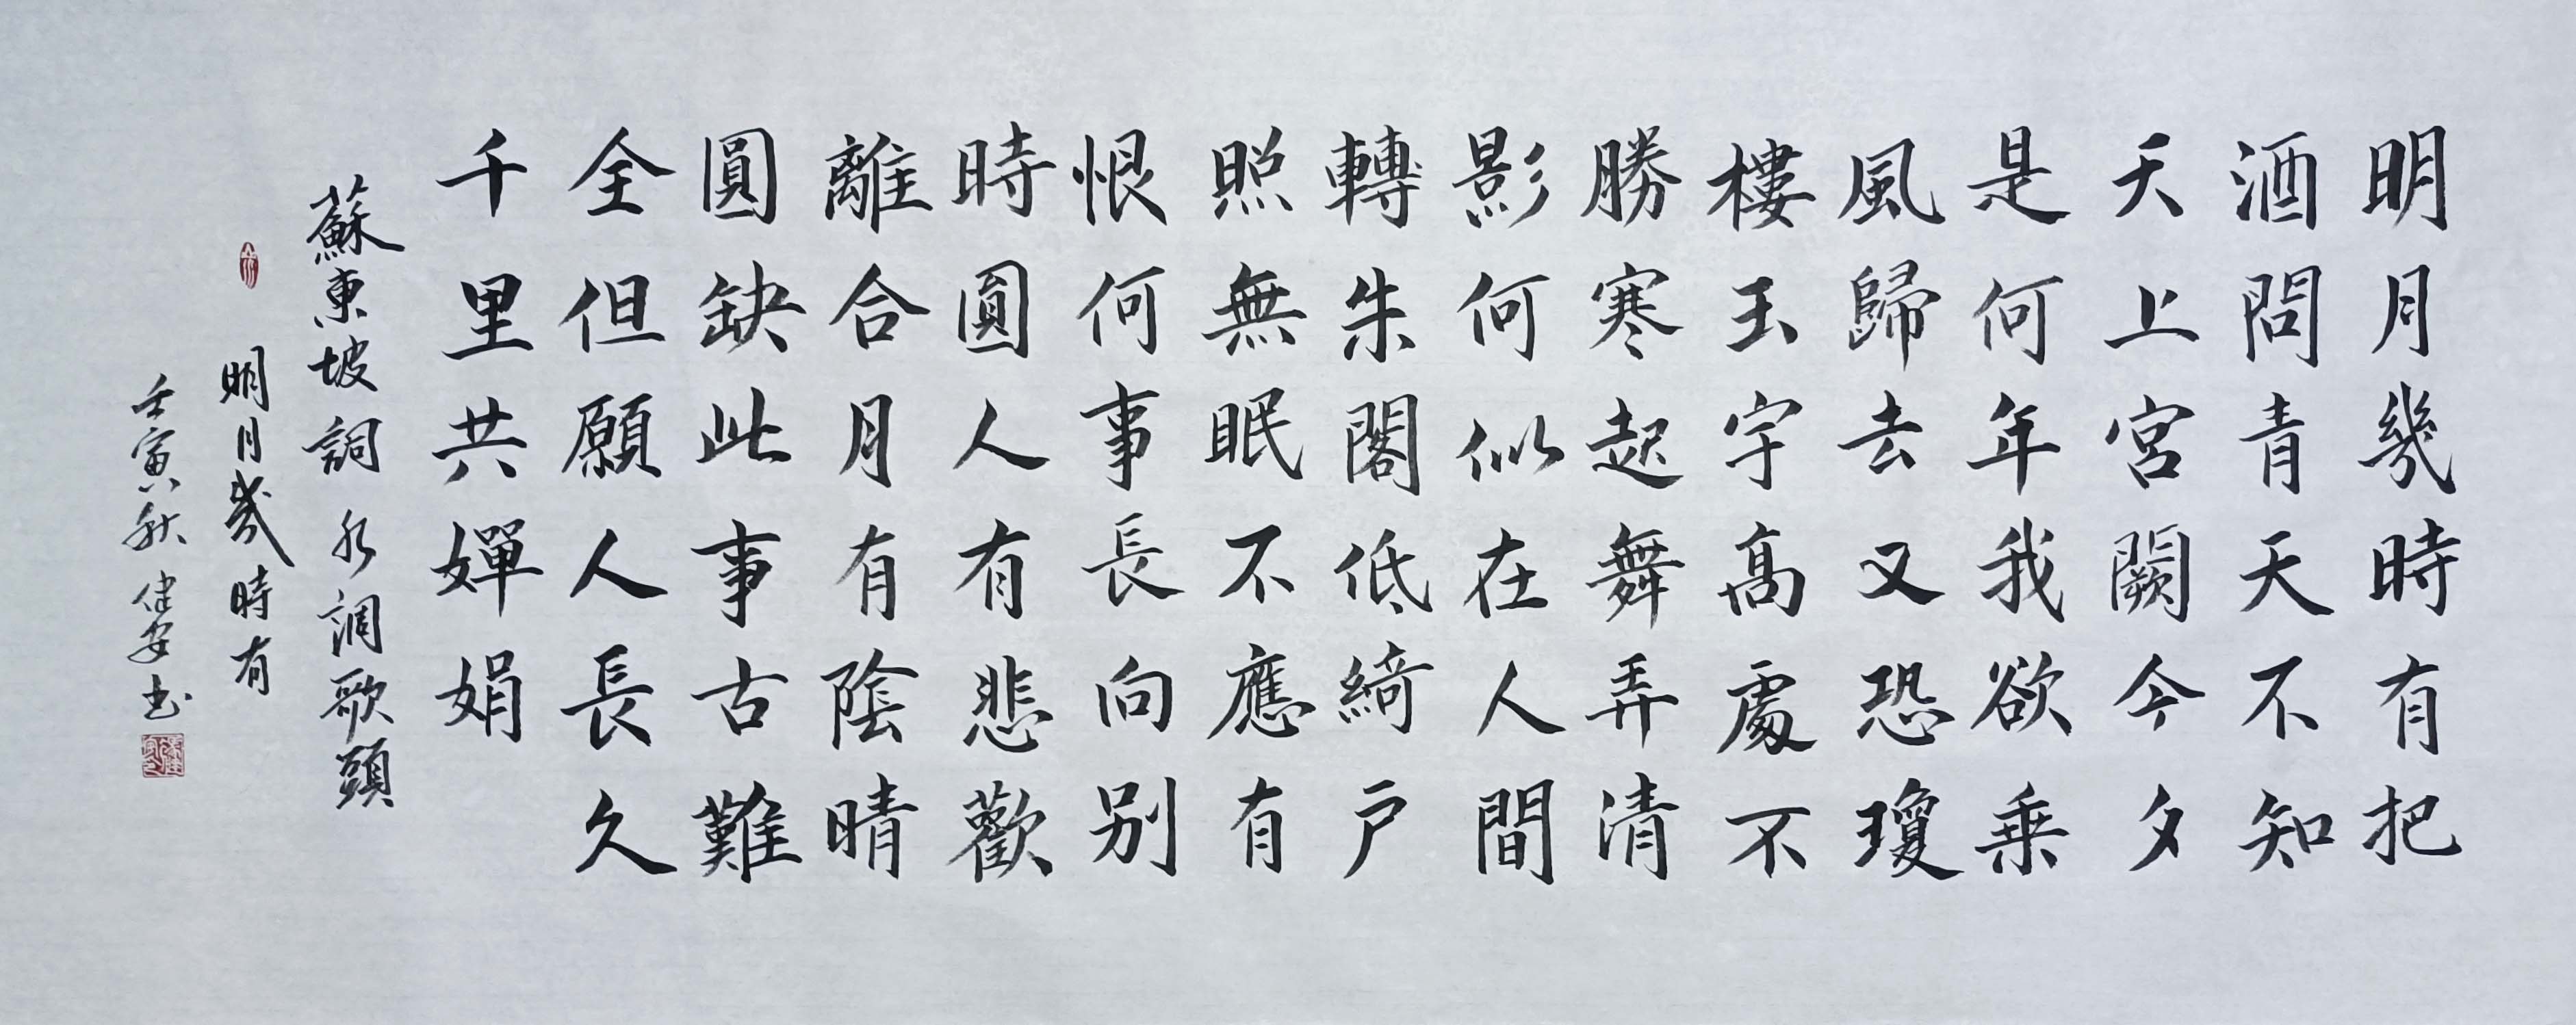 明月幾時有把
酒問青天不知
天上宮闕今夕
是何年我欲乗
風歸去又恐瓊
樓玉宇高處不
勝寒起舞弄清
影何似在人間
轉朱閣低綺户
照無眠不應有
恨何事長向别
時圓人有悲歡
離合月有陰晴
圓缺此事古難
全但願人長久
千里共嬋娟
蘇東坡詞水調歌頭
明月幾時有
壬寅秋健安书